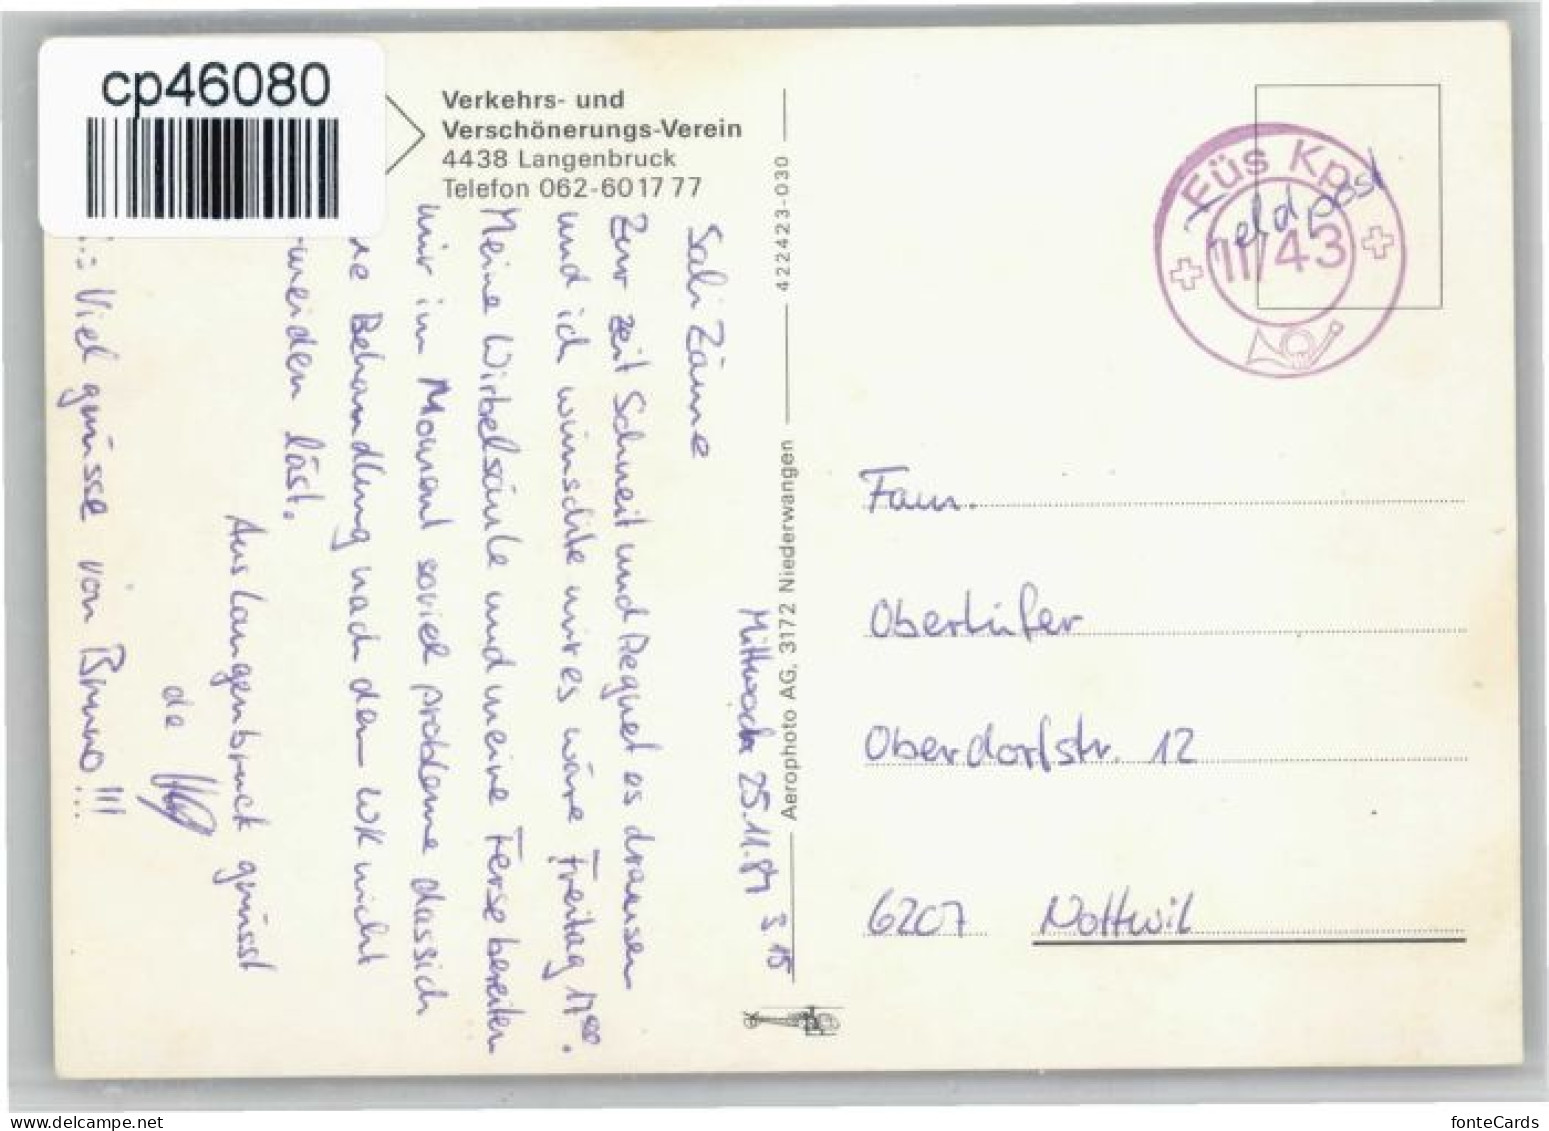 cp46080
Verkehrs- und
Verschönerungs-Verein
4438 Langenbruck
Telefon 062-60 17 77
422423-030
Aerophoto AG, 3172 Niederwangen
Füs Kp
Feldpost
11/43
Mittwoch 25.11.87
Sali Zäme
Zur zeit Schneit und Regnet es drausen
und ich wünschte mir es wäre Freitag 17ºº.
Meine Wirbelsäule und meine Ferse bereiten
mir im Moment soviel probleme dass ich
Behandlung nach dem WK nicht
meiden läst.
Aus Langenbruck grüsst
de
Viel grüsse von Bruno !!!
Fam.
Oberlüfer
Oberdorfstr. 12
6207 Nottwil
www.delcampe.net
fonteCards